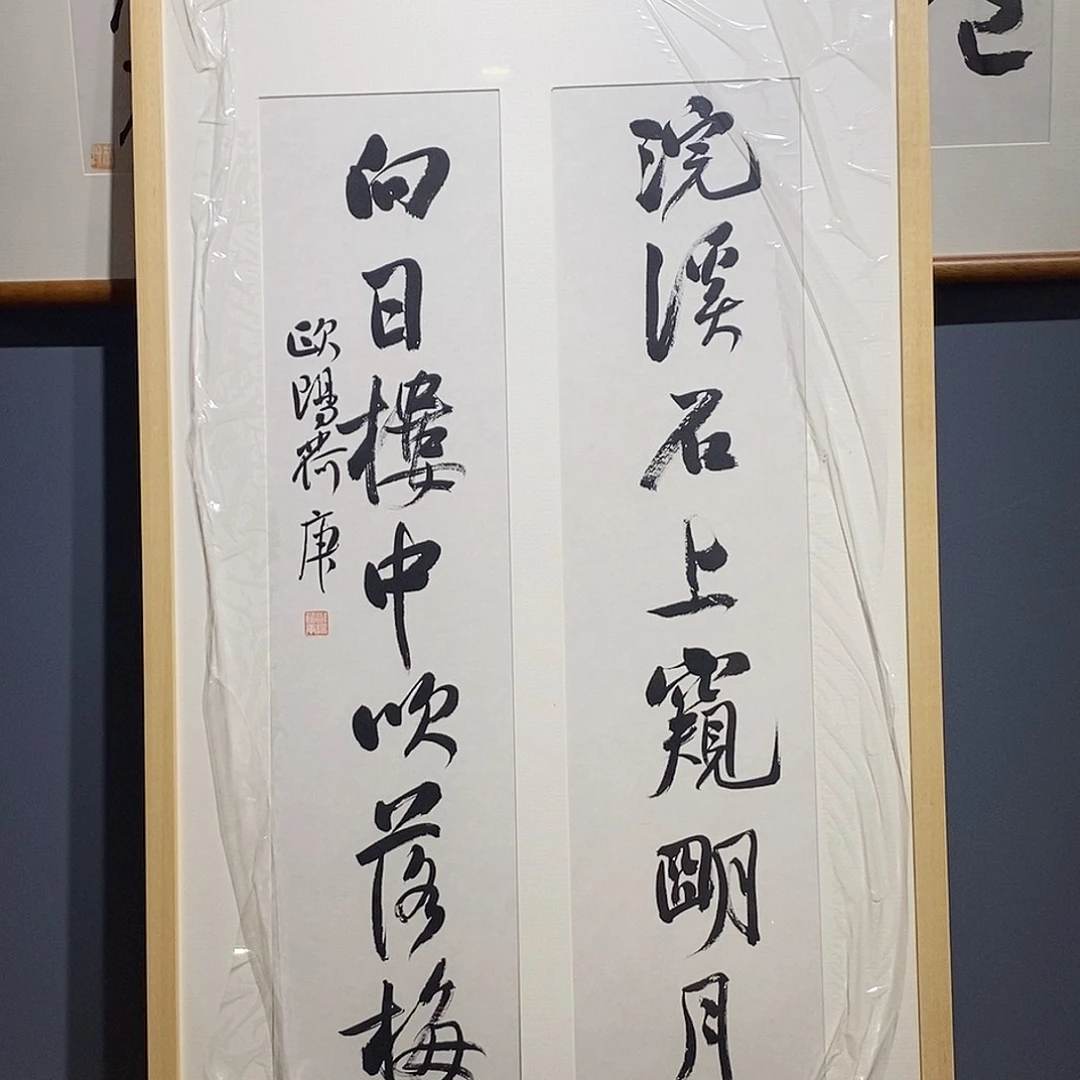 浣溪石上窺明月
向日樓中吹落梅
歐陽荷庚